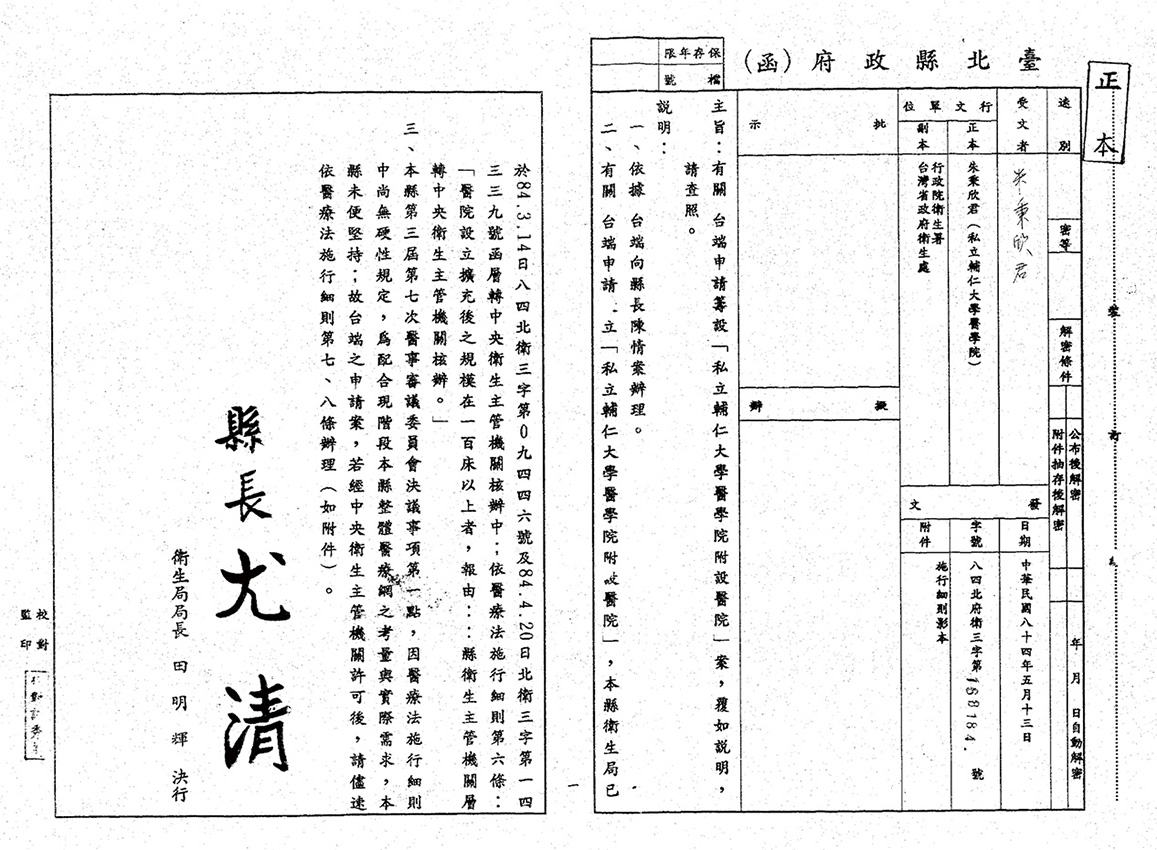 正本
臺北縣政府(函)
保存年限
檔號
速別
密等
解密條件
公布後解密
附件抽存後解密
年 月 日自動解密
受文者
朱秉欣君
行文單位
正本
朱秉欣君(私立輔仁大學醫學院)
副本
行政院衛生署
台灣省政府衛生處
發文
日期
中華民國八十四年五月十三日
字號
八四北府衛三字第168184.號
附件
施行細則影本
批示
擬辦
主旨:有關 台端申請籌設「私立輔仁大學醫學院附設醫院」案,覆如說明,
請查照。
說明:
一、依據 台端向縣長陳情案辦理。
二、有關 台端申請 立「私立輔仁大學醫學院附設醫院」,本縣衛生局已
一
於84.3.14日八四北衛三字第0九四四六號及84.4.20日北衛三字第一四
三三九號函層轉中央衛生主管機關核辦中;依醫療法施行細則第六條:
「醫院設立擴充後之規模在一百床以上者,報由::縣衛生主管機關層
轉中央衛生主管機關核辦。」
三、本縣第三屆第七次醫事審議委員會決議事項第一點,因醫療法施行細則
中尚無硬性規定,為配合現階段本縣整體醫療網之考量與實際需求,本
縣未便堅持;故台端之申請案,若經中央衛生主管機關許可後,請儘速
依醫療法施行細則第七、八條辦理(如附件)。
縣長 尤清
衛生局局長 田明輝 決行
校對
監印